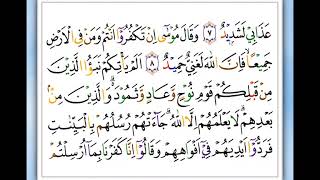 عَذَابِيْ لَشَدِيْدٌ ۝٧ وَقَالَ مُوْسٰٓى اِنْ تَكْفُرُوْٓا اَنْتُمْ وَمَنْ فِي الْاَرْضِ
جَمِيْعًا ۙ فَاِنَّ اللّٰهَ لَغَنِيٌّ حَمِيْدٌ ۝٨ اَلَمْ يَاْتِكُمْ نَبَؤُا الَّذِيْنَ
مِنْ قَبْلِكُمْ قَوْمِ نُوْحٍ وَّعَادٍ وَّثَمُوْدَ ۛ وَالَّذِيْنَ مِنْۢ
بَعْدِهِمْ ۛ لَا يَعْلَمُهُمْ اِلَّا اللّٰهُ ؕ جَآءَتْهُمْ رُسُلُهُمْ بِالْبَيِّنٰتِ
فَرَدُّوْٓا اَيْدِيَهُمْ فِيْٓ اَفْوَاهِهِمْ وَقَالُوْٓا اِنَّا كَفَرْنَا بِمَآ اُرْسِلْتُمْ